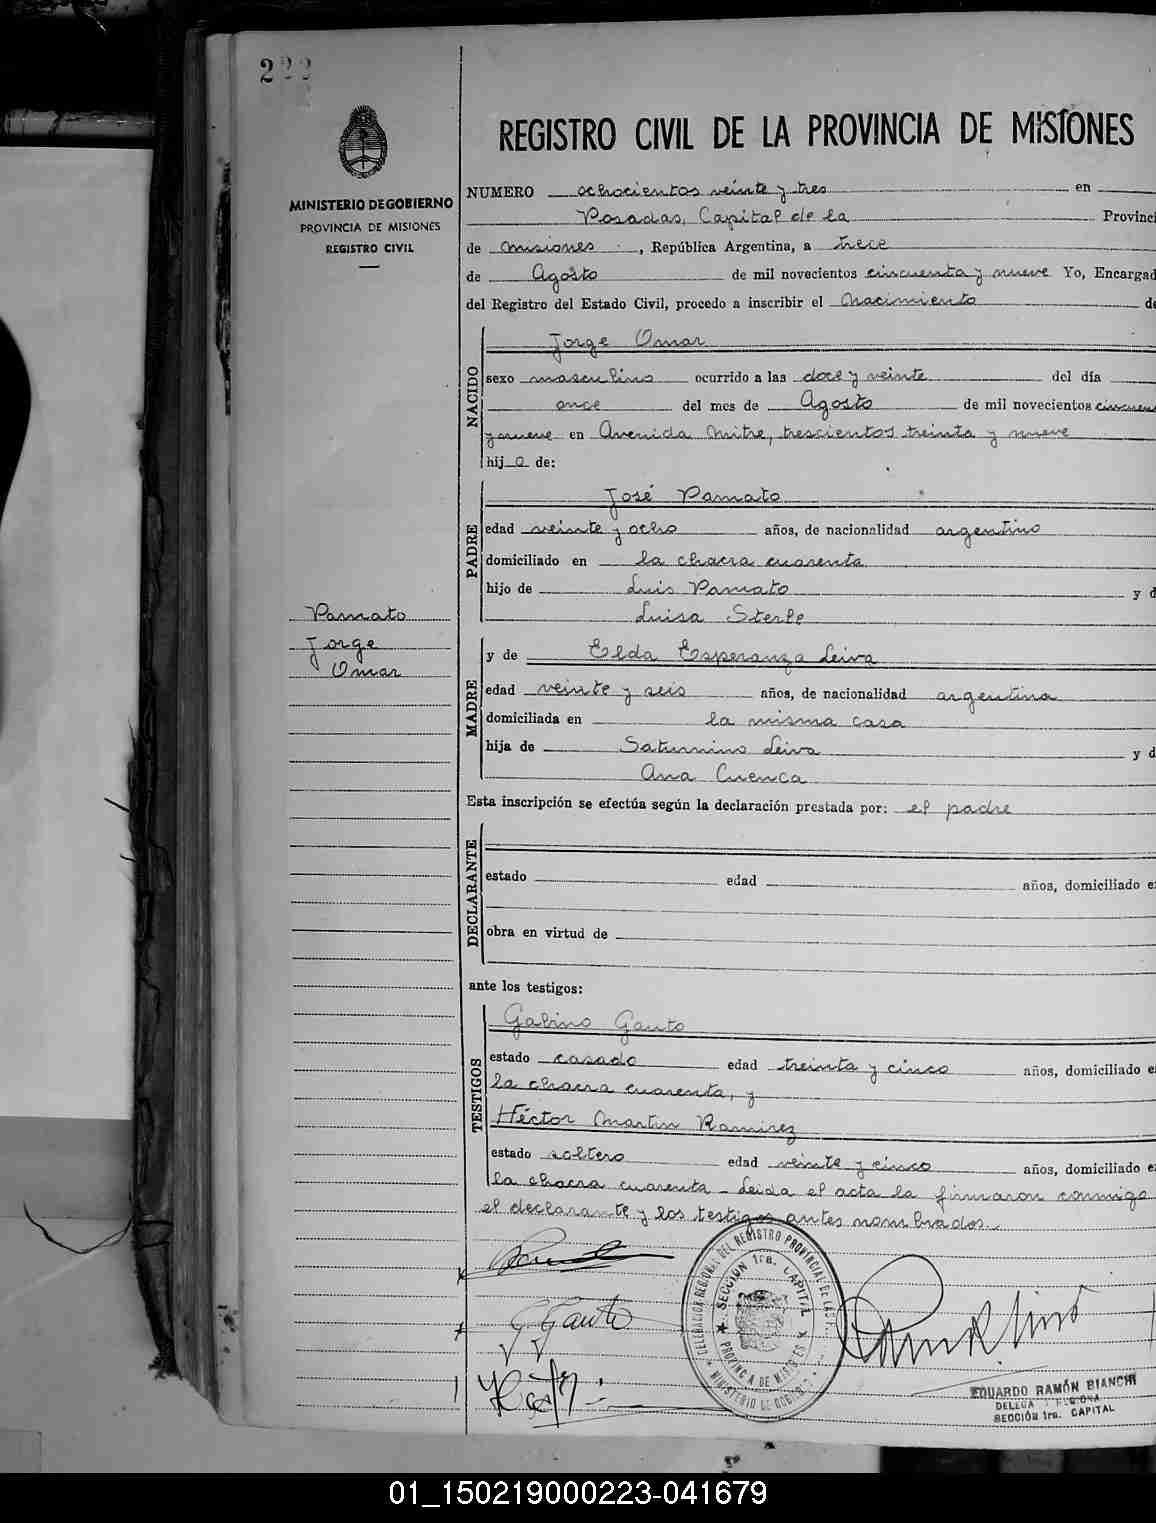 222
MINISTERIO DE GOBIERNO
PROVINCIA DE MISIONES
REGISTRO CIVIL
REGISTRO CIVIL DE LA PROVINCIA DE MISIONES
NUMERO ochocientos veinte y tres en
Posadas, Capital de la Provinci
de Misiones , República Argentina, a trece
de Agosto de mil novecientos cincuenta y nueve Yo, Encargad
del Registro del Estado Civil, procedo a inscribir el Nacimiento de
NACIDO
Jorge Omar
sexo masculino ocurrido a las doce y veinte del día
once del mes de Agosto de mil novecientos cincuen
y nueve en Avenida Mitre, trescientos treinta y nueve
hijo de:
PADRE
José Pamato
edad veinte y ocho años, de nacionalidad argentino
domiciliado en la chacra cuarenta
hijo de Luis Pamato y d
Luisa Sterle
Pamato
Jorge
Omar
MADRE
y de Elda Esperanza Leiva
edad veinte y seis años, de nacionalidad argentina
domiciliada en la misma casa
hija de Saturnino Leiva y d
Ana Cuenca
Esta inscripción se efectúa según la declaración prestada por: el padre
DECLARANTE
estado edad años, domiciliado e
obra en virtud de
ante los testigos:
TESTIGOS
Gabino Gauto
estado casado edad treinta y cinco años, domiciliado e
la chacra cuarenta, y
Héctor Martin Ramirez
estado soltero edad veinte y cinco años, domiciliado e
la chacra cuarenta - Leida el acta la firmaron conmigo
el declarante y los testigos antes nombrados.
G Gauto
DELEGACION REGIONAL DEL REGISTRO PROVINCIAL DE LAS
SECCION 1ra. CAPITAL
PROVINCIA DE MISIONES
MINISTERIO DE GOBIERNO
EDUARDO RAMÓN BIANCHI
SECCIÓN 1ra. CAPITAL
01_150219000223-041679